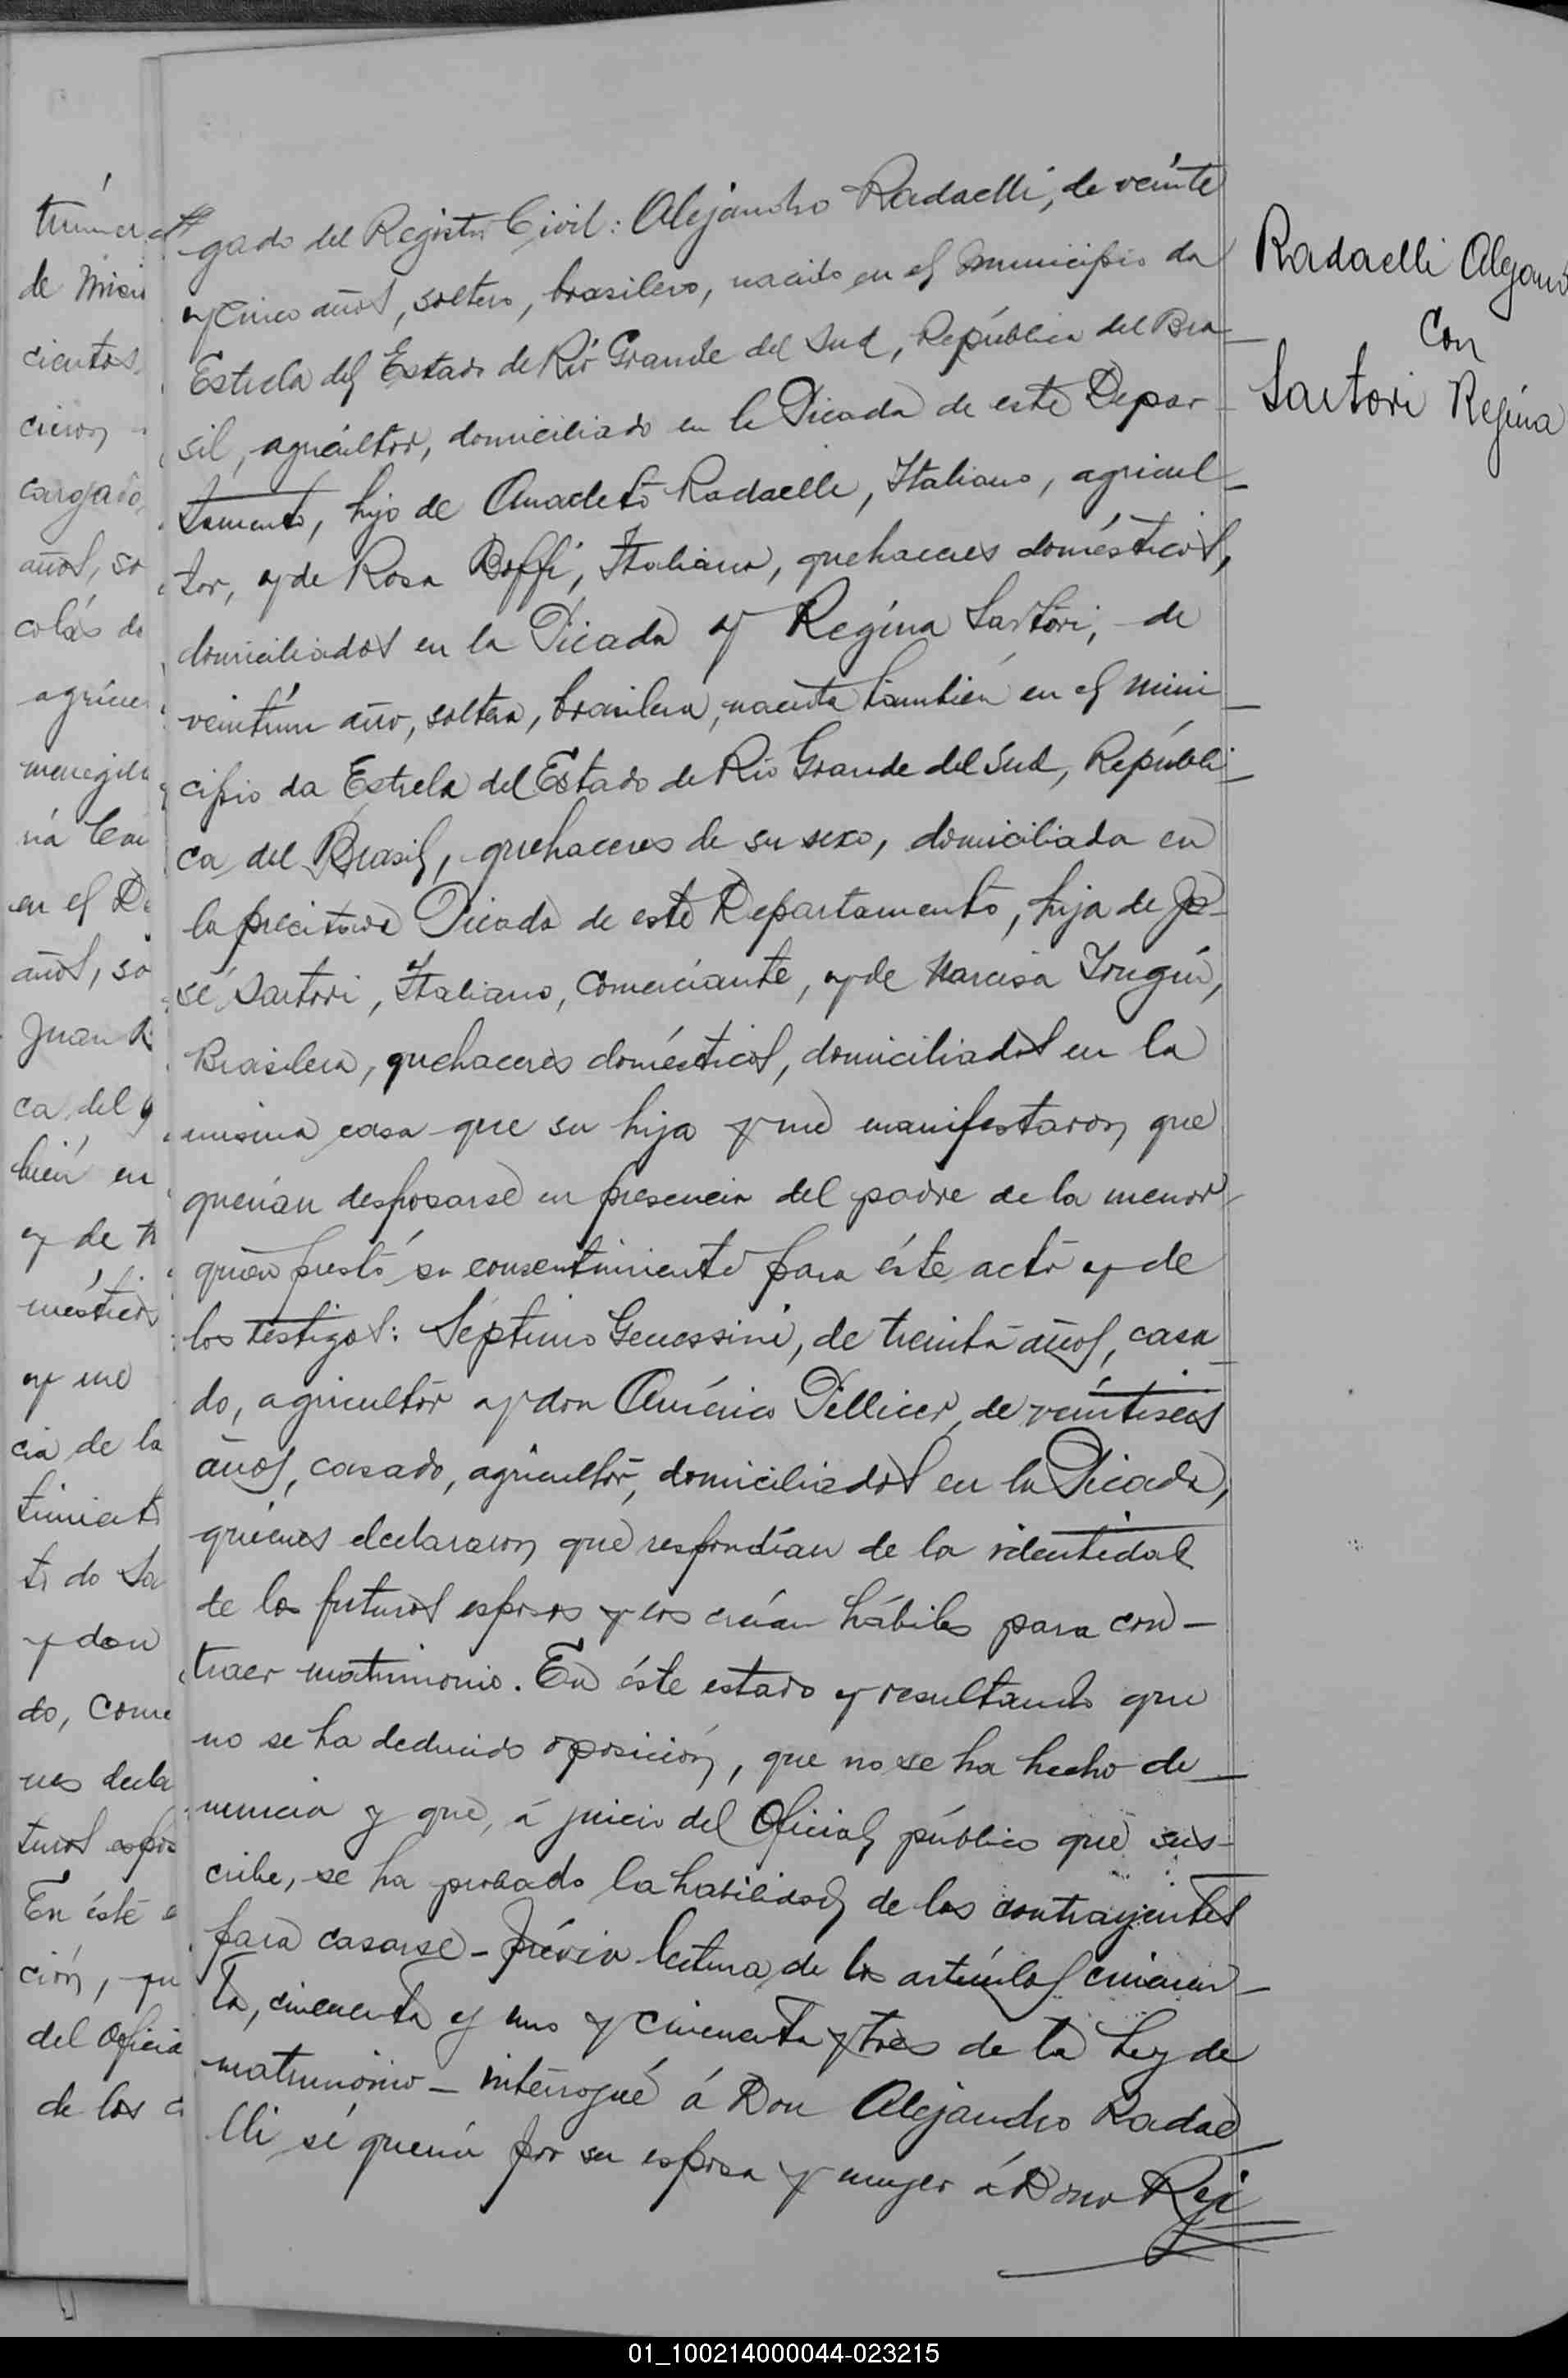 gado del Registro Civil: Alejandro Radaelli, de veinte
y cinco años, soltero, brasilero, nacido en el Municipio da
Estrela del Estado de Rio Grande del Sud, República del Bra-
sil, agricultor, domiciliado en la Picada de este Depar-
tamento, hijo de Amadeto Radaelli, Italiano, agricul-
tor, y de Rosa Boffi, Italiana, quehaceres domésticos,
domiciliados en la Picada y Regina Sartori, de
veintiun año, soltera, brasilera, nacida también en el Muni-
cipio da Estrela del Estado de Rio Grande del Sud, Repúbli-
ca del Brasil, quehaceres de su sexo, domiciliada en
la precitada Picada de este Departamento, hija de Jo-
sé Sartori, Italiano, Comerciante, y de Narcisa
Brasilera, quehaceres domésticos, domiciliados en la
misma casa que su hija y me manifestaron que
querian desposarse en presencia del padre de la menor
quien prestó su consentimiento para éste acto y de
los testigos: Séptimo Genessini, de treinta años, casa-
do, agricultor y don Américo Pellicer, de veintiseis
años, casado, agricultor, domiciliados en la Picada,
quienes declararon que respondían de la identidad
de los futuros esposos y los creían hábiles para con-
traer matrimonio. En éste estado y resultando que
no se ha deducido oposición, que no se ha hecho de-
nuncia y que, á juicio del Oficial público que sus-
cribe, se ha probado la habilidad de los contrayentes
para casarse - Prévia lectura de los artículos cincuen-
ta, cincuenta y uno y cincuenta y tres de la Ley de
matrimonio - interrogué á Don Alejandro Radae-
lli sí quería por su esposa y muger á Dona Regi
Radaelli Alejand
Con
Sartori Regina
de Misio
cientos
cargado,
años, so
colás de
agricu
en el De
años, so
Juan
ca del
bién en
y de
mésticos
y me
cia de la
y don
do, Come
nes decla
turos espo
En éste e
ción, qu
del Oficia
de los c
01_100214000044-023215